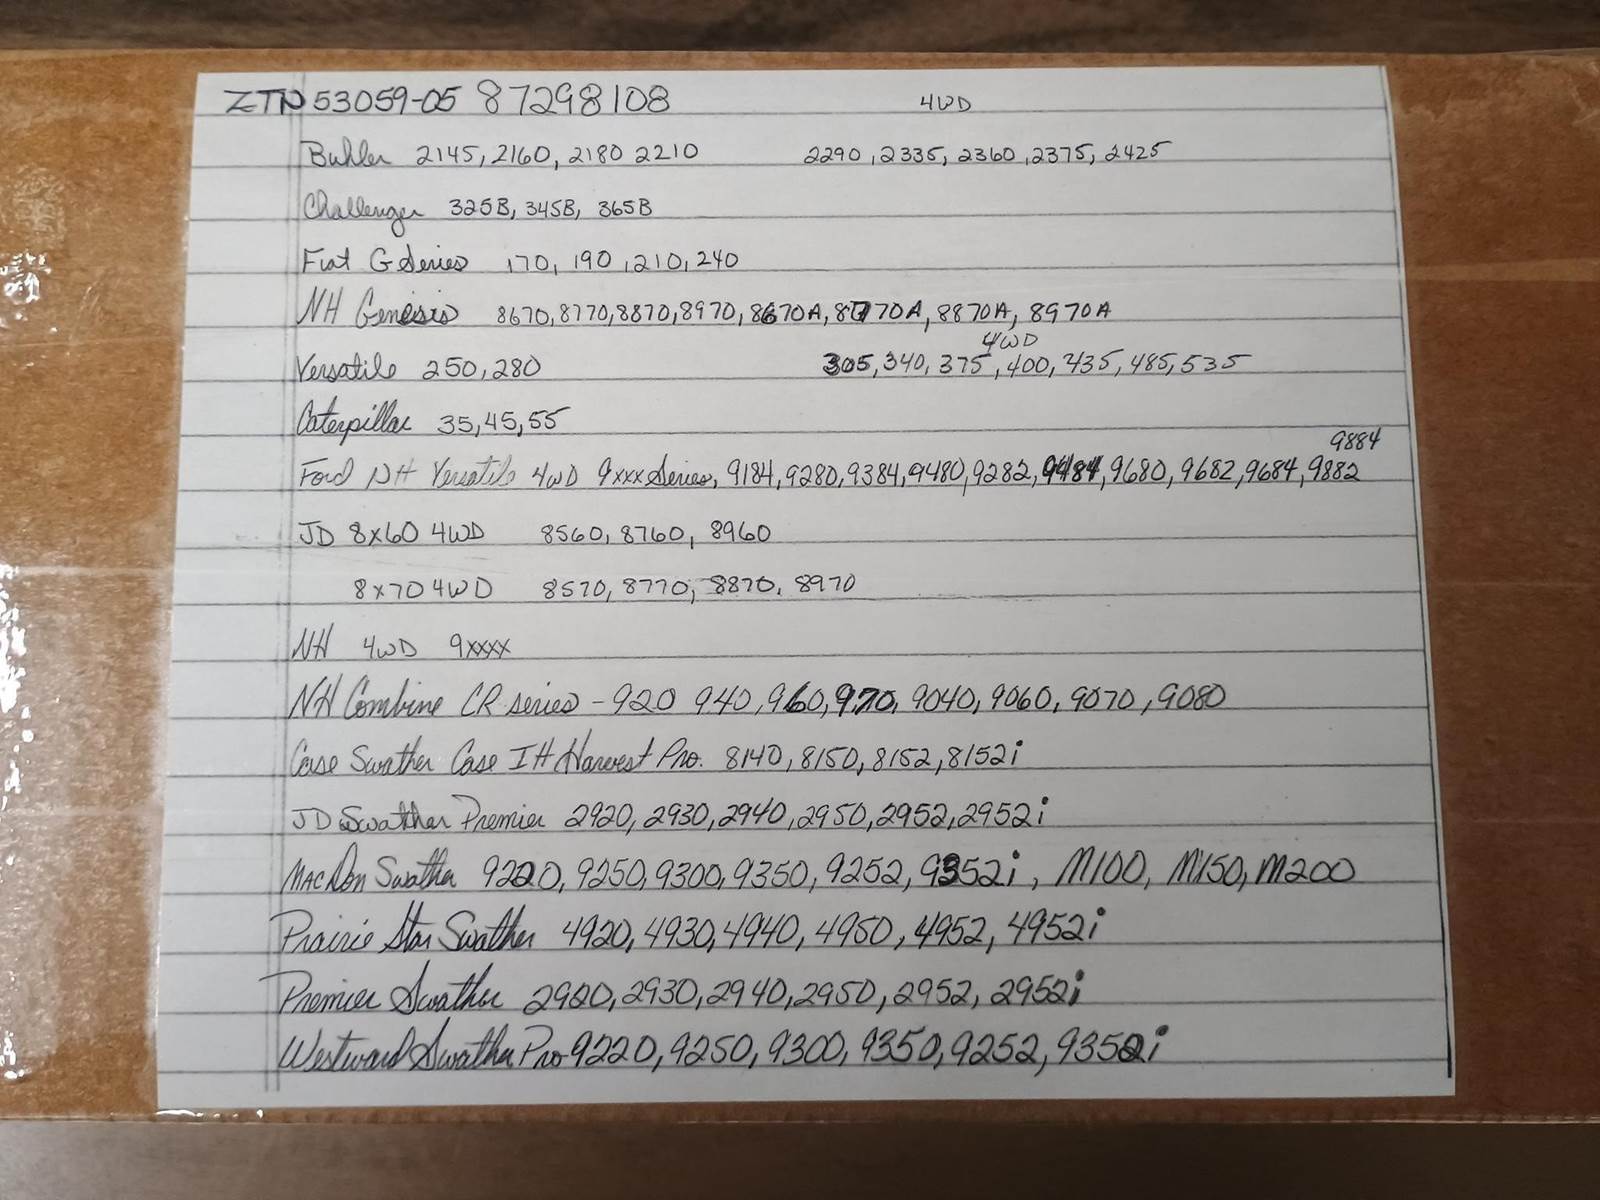 ZTN 53059-05 87298108 4WD
Buhler 2145, 2160, 2180 2210 2290, 2335, 2360, 2375, 2425
Challenger 325B, 345B, 365B
Fiat G Series 170, 190, 210, 240
NH Genesis 8670, 8770, 8870, 8970, 8670A, 8770A, 8870A, 8970A
4WD
Versatile 250, 280 305, 340, 375, 400, 435, 485, 535
Caterpillar 35, 45, 55
9884
Ford NH Versatile 4WD 9xxx Series, 9184, 9280, 9384, 9480, 9282, 9484, 9680, 9682, 9684, 9882
JD 8x60 4WD 8560, 8760, 8960
8x70 4WD 8570, 8770, 8870, 8970
NH 4WD 9xxxx
NH Combine CR series - 920 940, 960, 970, 9040, 9060, 9070, 9080
Case Swather Case IH Harvest Pro. 8140, 8150, 8152, 8152i
JD Swather Premier 2920, 2930, 2940, 2950, 2952, 2952i
MacDon Swather 9220, 9250, 9300, 9350, 9252, 9352i, M100, M150, M200
Prairie Star Swather 4920, 4930, 4940, 4950, 4952, 4952i
Premier Swather 2920, 2930, 2940, 2950, 2952, 2952i
Westward Swather Pro 9220, 9250, 9300, 9350, 9252, 9352i